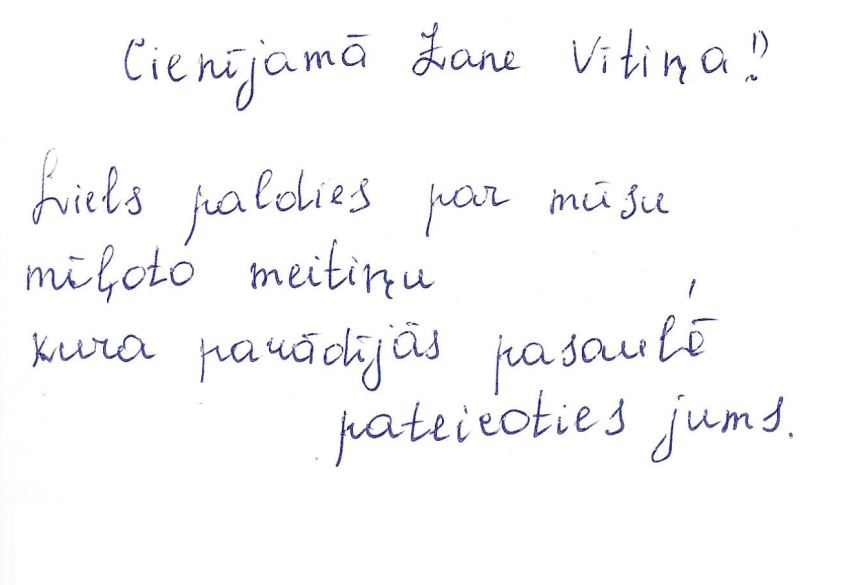 Cienījamā Zane Vītiņa!)
Liels paldies par mūsu
mīļoto meitiņu
kura parādījās pasaulē
pateicoties jums.